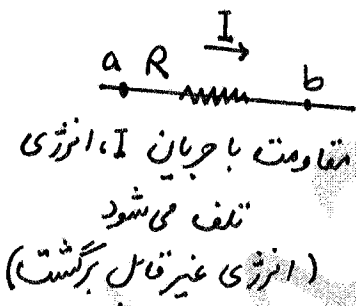 I
a R b
مقاومت با جریان I، انرژی
تلف می‌شود
(انرژی غیرقابل برگشت)